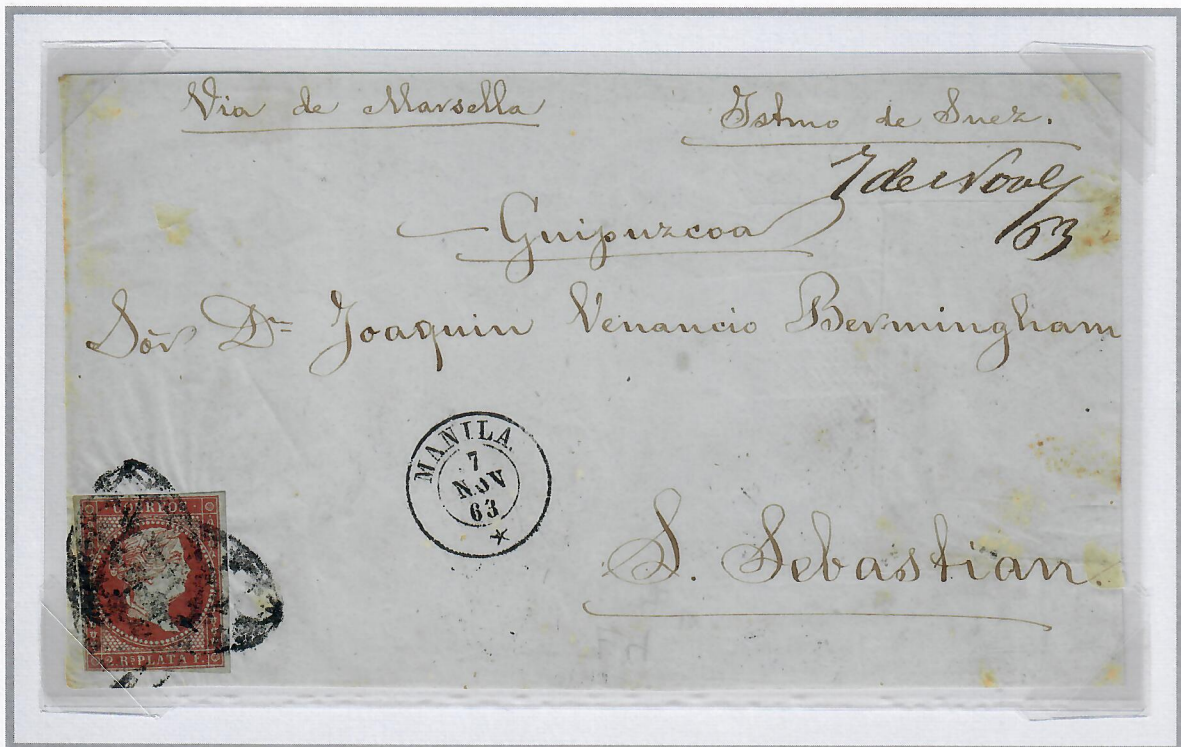 Via de Marsella
Istmo de Suez.
7 de Nove
/63
Guipuzcoa
Sòr Dn Joaquin Venancio Bermingham
MANILA
7
NOV
63
S. Sebastian.
CORREOS
2 Rs PLATA F.